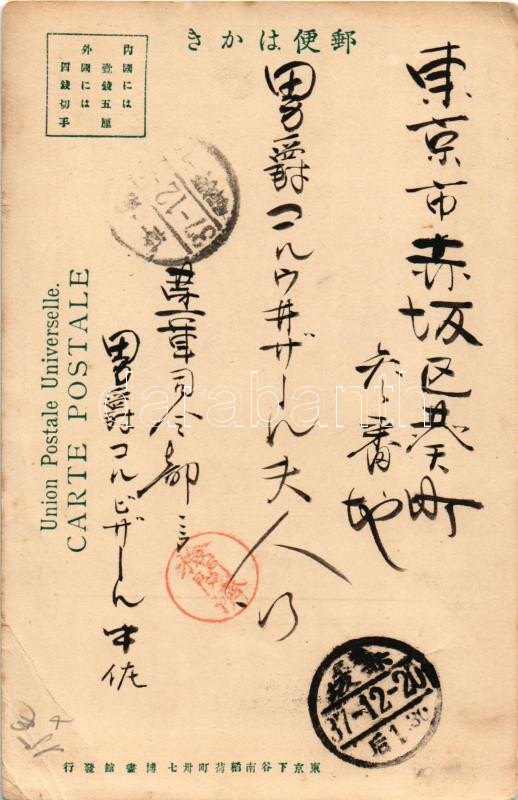 郵便はかき
内國には
壹錢五厘
外國には
四錢切手
東京市赤坂区葵町
六番地
男爵コルウ井ザール夫人行
第一軍司令部ニテ
男爵コルビザール中佐
37-12-
赤坂
37-12-20
后1.30
Union Postale Universelle.
CARTE POSTALE
東京下谷南稻荷町卅七博畫館發行
darabanth